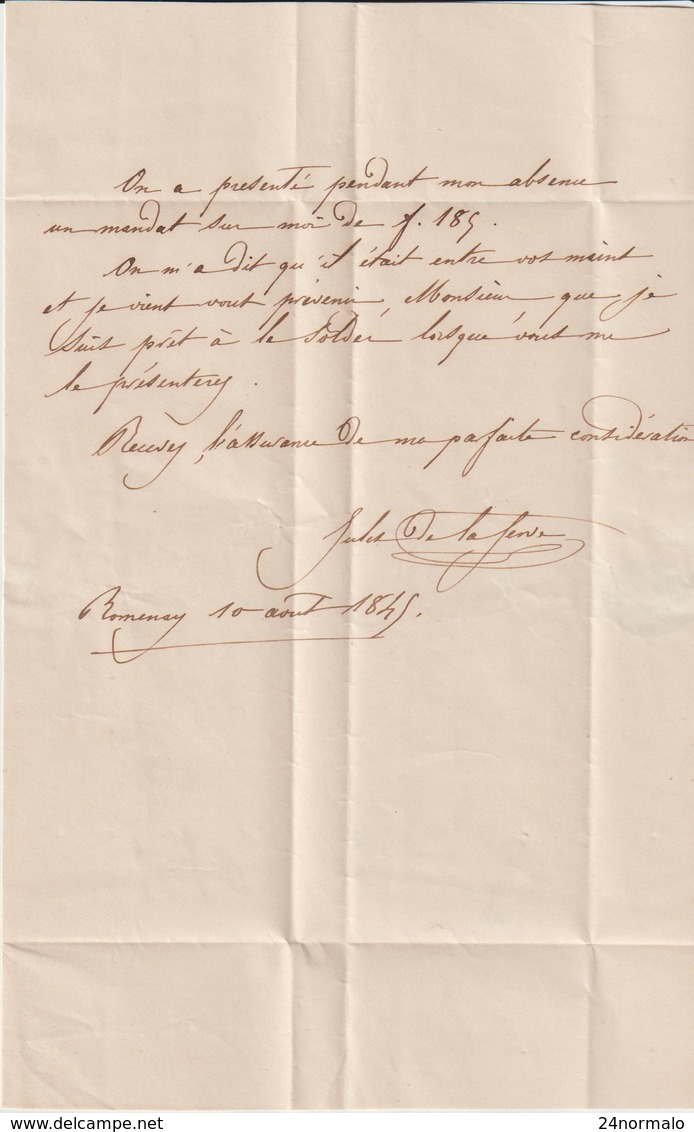 On a presenté pendant mon absence
un mandat sur moi de f. 185.
On m'a dit qu'il était entre vos mains
et je viens vous prévenir, Monsieur que je
suis prêt à le solder lorsque vous me
le présenterez.
Recevez, l'assurance de ma parfaite considération
Jules De la Serve
Romenay 10 aout 1845.
delcampe.net
24normalo